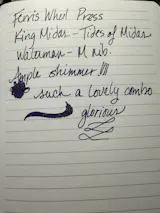 Ferris Wheel Press
King Midas - Tides of Midas
Waterman - M nib.
Ample shimmer !!!
such a lovely combo
glorious